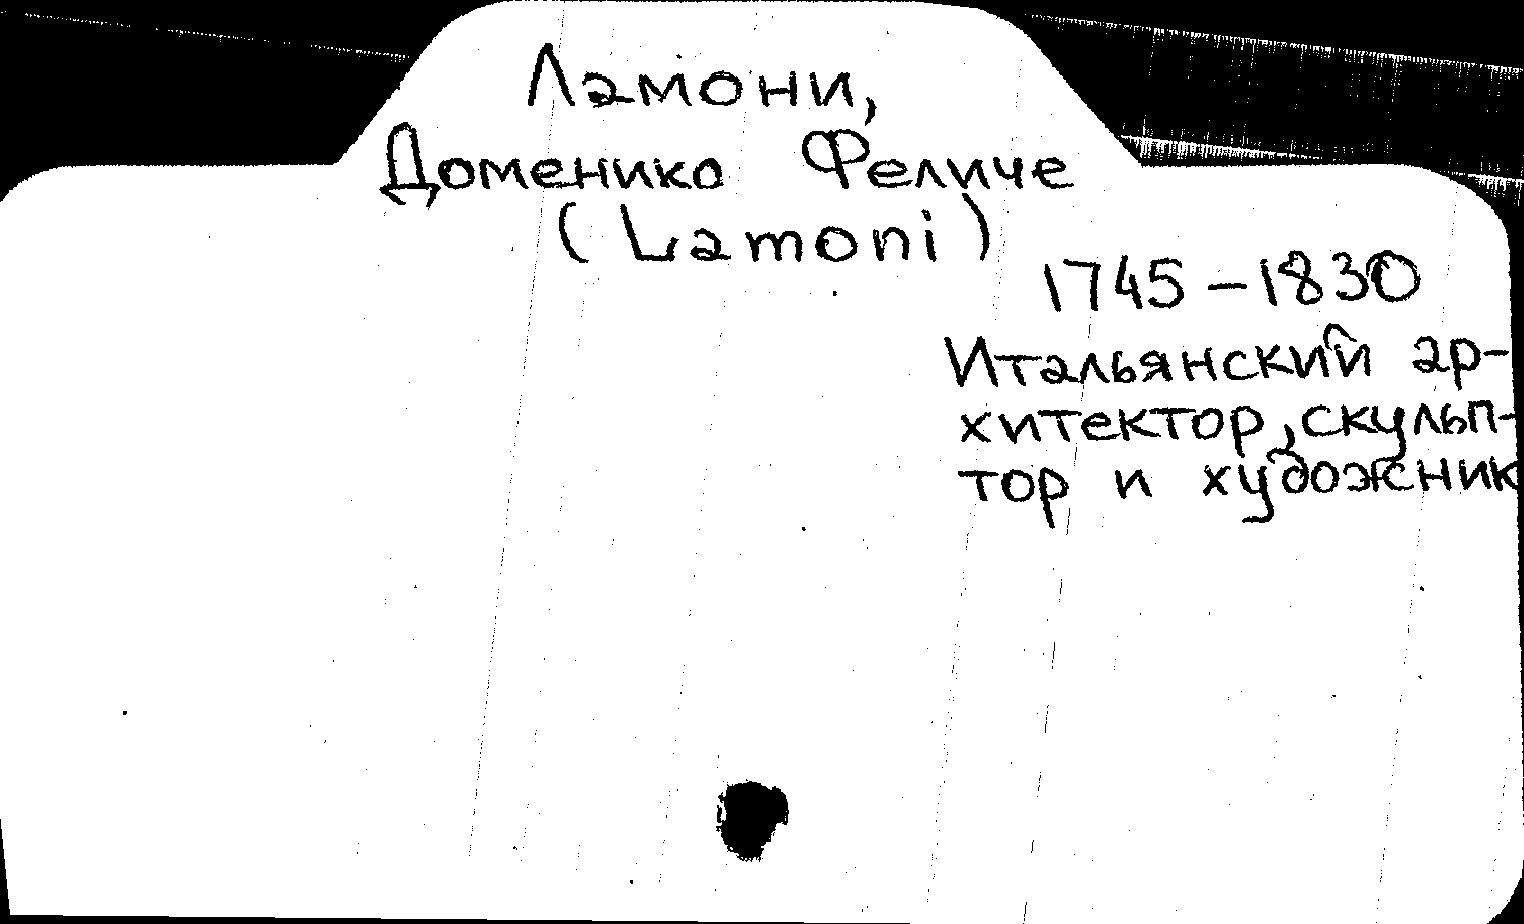 Ламони,
Доменико Феличе
(Lamoni)
1745 – 1830
Итальянский ар-
хитектор, скульп-
тор и художник